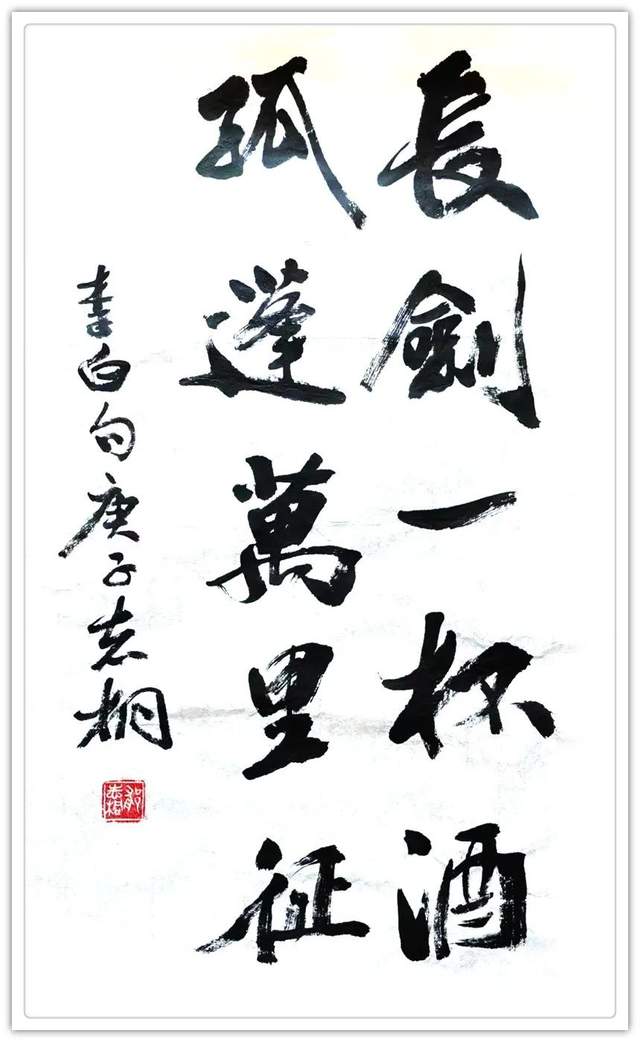 長劍一杯酒
孤蓬萬里征
李白句庚子志桐